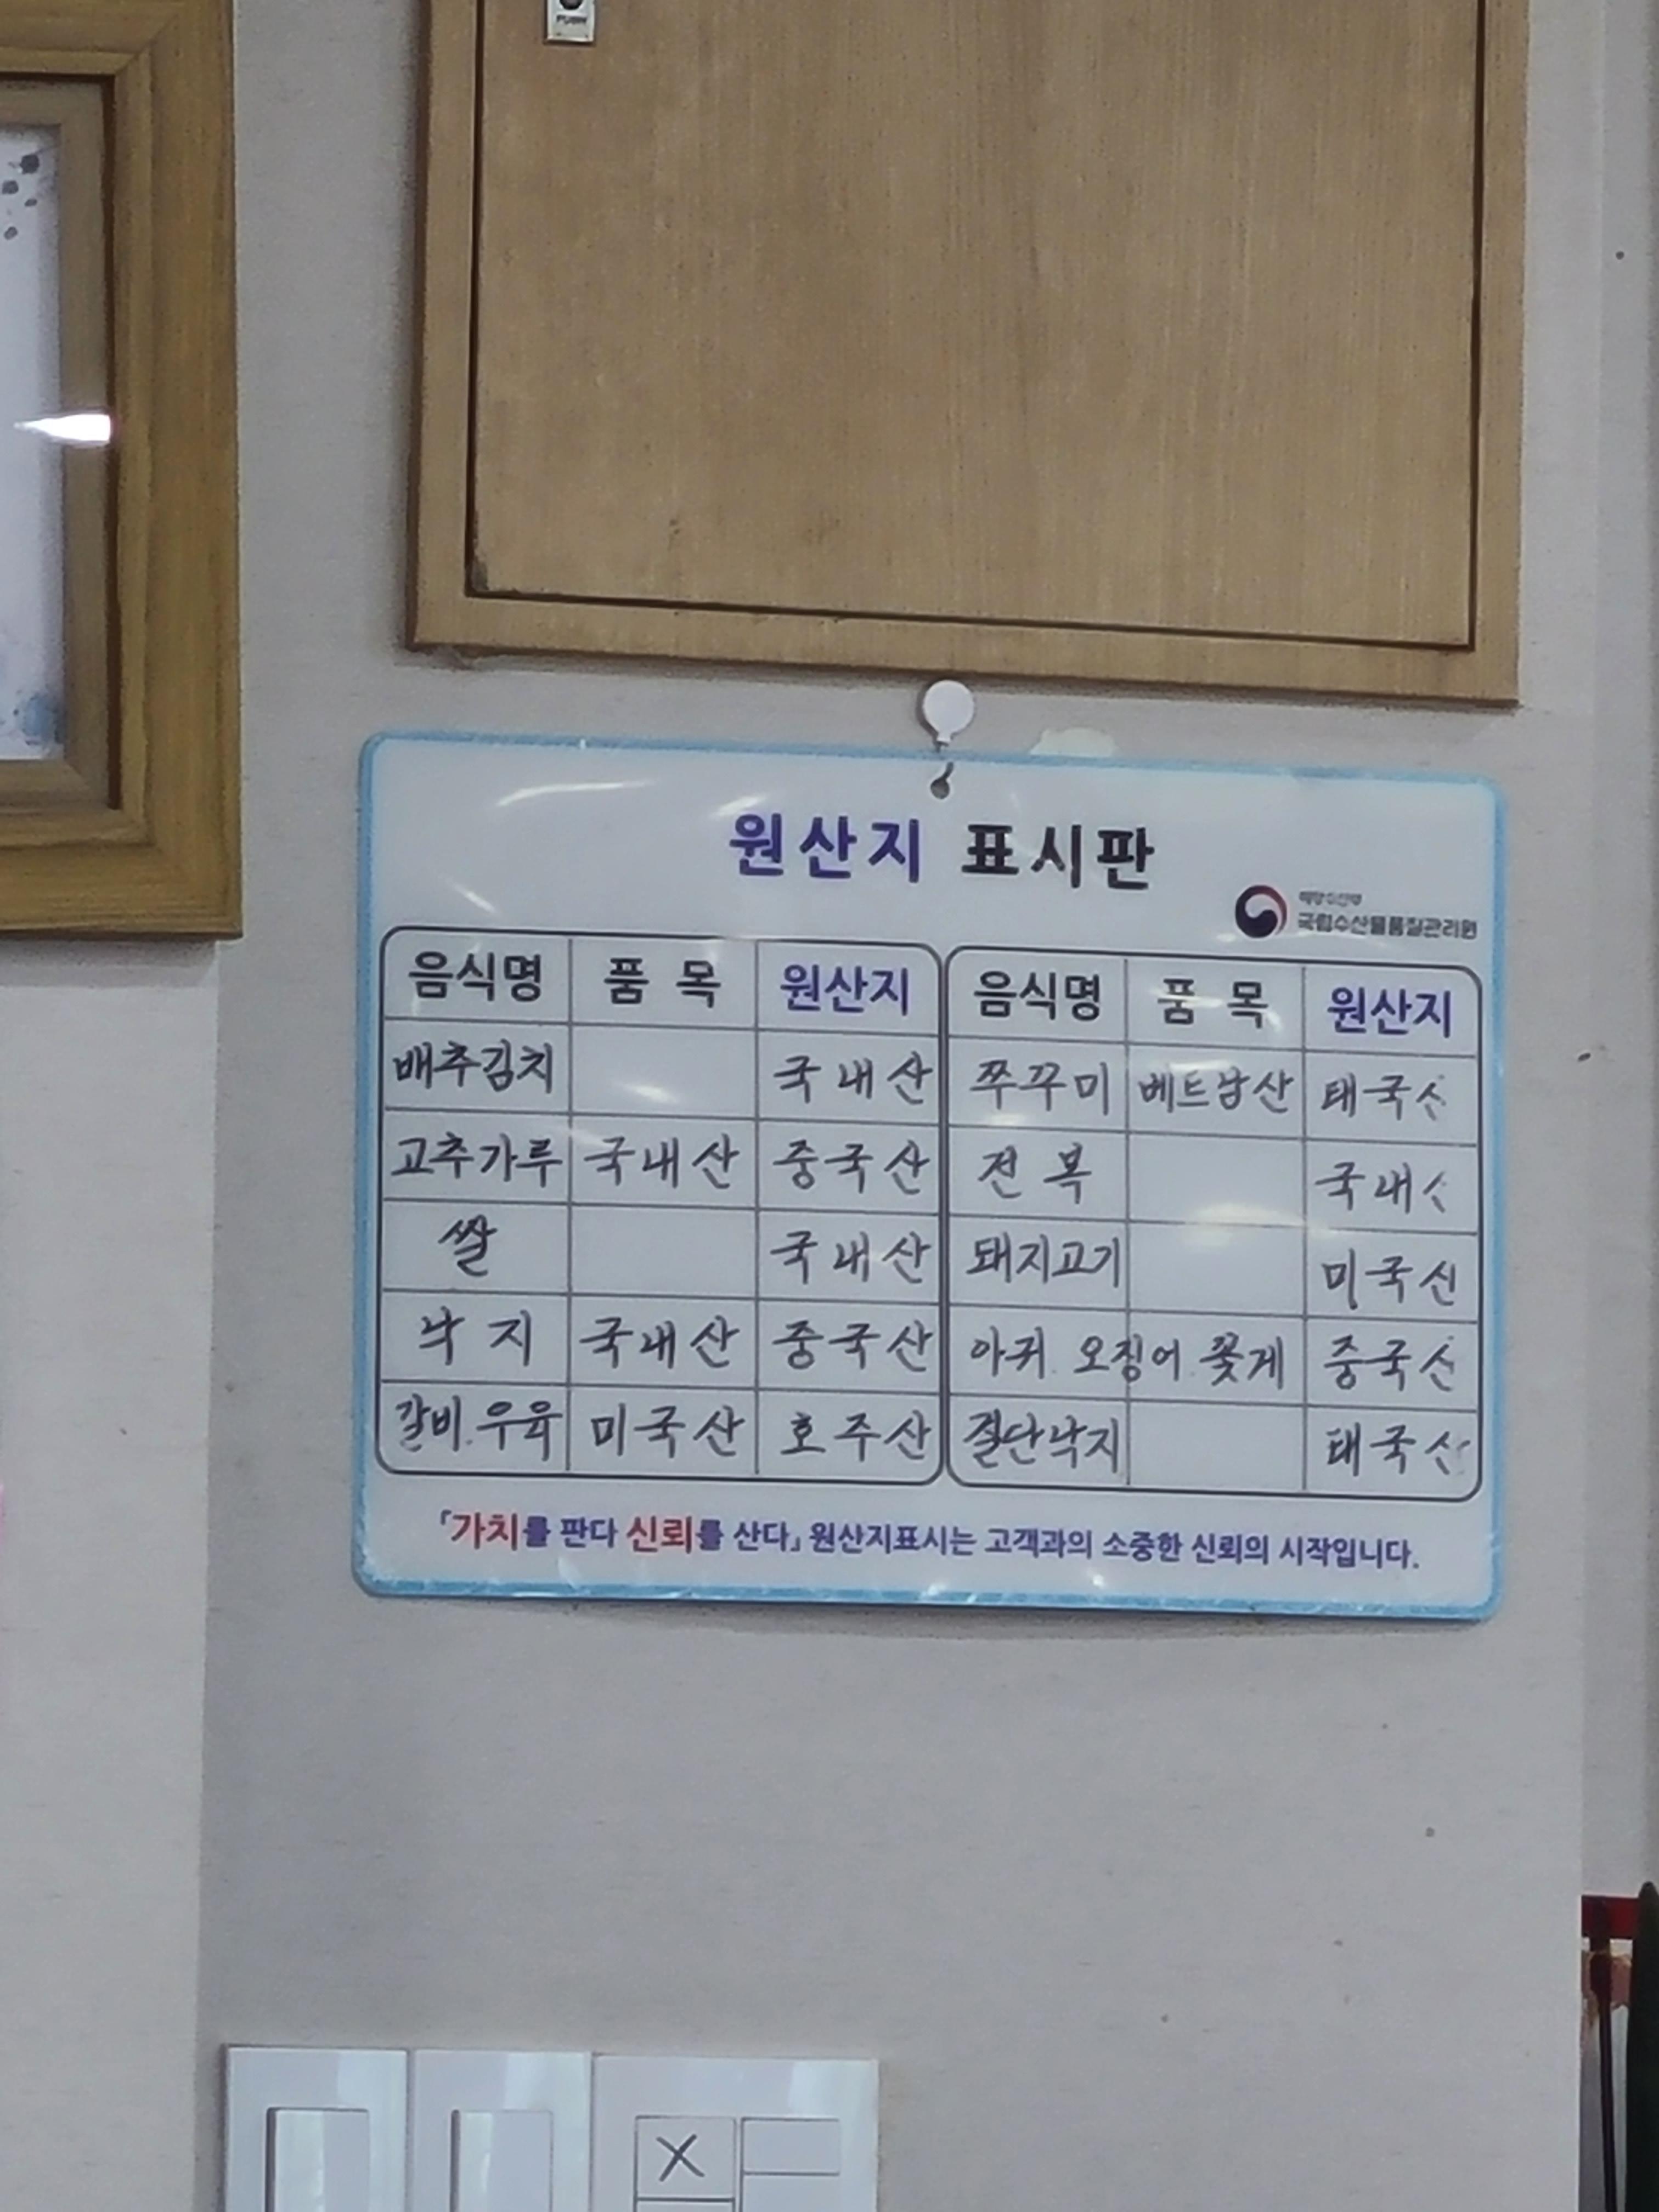 PUSH
원산지 표시판
해양수산부
국립수산물품질관리원
음식명 품 목 원산지 음식명 품 목 원산지
배추김치 국내산 쭈꾸미 베트남산 태국산
고추가루 국내산 중국산 전 복 국내산
쌀 국내산 돼지고기 미국산
낙 지 국내산 중국산 아귀. 오징어. 꽃게 중국산
갈비.우육 미국산 호주산 절단낙지 태국산
「가치를 판다 신뢰를 산다」 원산지표시는 고객과의 소중한 신뢰의 시작입니다.
X